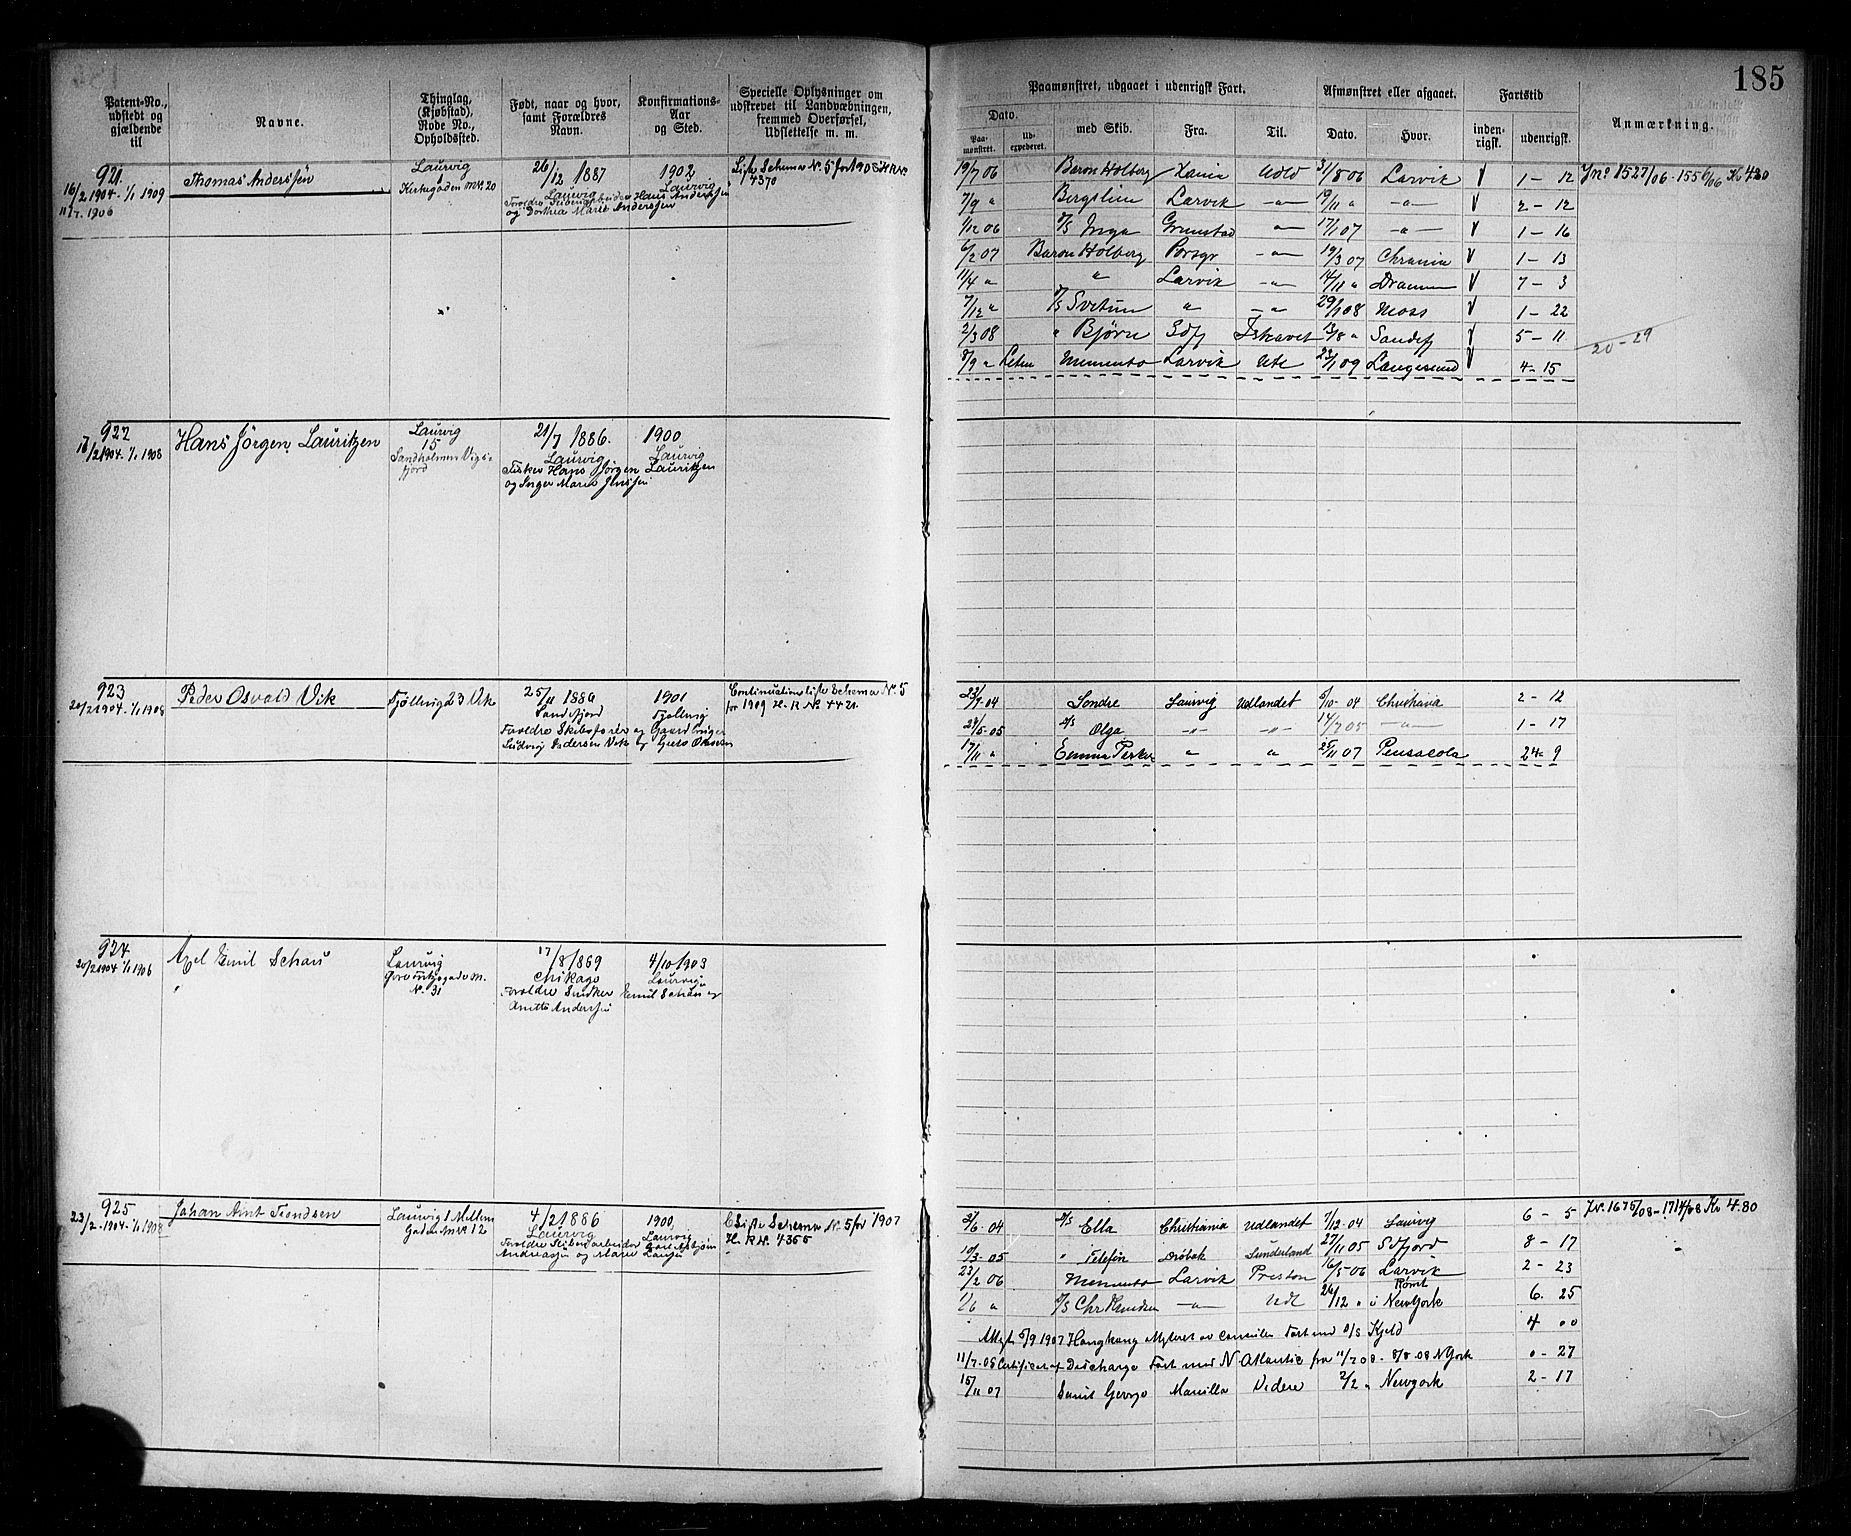 185
Patent-No., udstedt og gjældende til
Navne.
Thinglag, (Kjøbstad), Rode No., Opholdssted.
Født, naar og hvor, samt Forældres Navn.
Konfirmations-Aar og Sted.
Specielle Oplysninger om udskrevet til Landvæbningen, fremmed Overførsel, Udslettelse m. m.
Paamønstret, udgaaet i udenrigsk Fart.
Dato.
Paamønstret.
Udexpederet.
med Skib.
Fra.
Til.
Afmønstret eller afgaaet.
Dato.
Hvor.
Fartstid
indenrigsk.
udenrigsk.
Anmærkning.
921
16/2 1904. 1/1 1909
Thomas Anderssen
Laurvig
1
Kirkegaden
26/12 1887
Laurvig
1902
Laurvig
og Dorthea Marie Anderssen
4370
19/7 06 Baron Holberg Xania Udld 31/8 06 Larvik V 1 - 12
7/9 " Bergslien Larvik -"- 19/11 " -"- V 2 - 12
1/12 06 S/S Inga Grimstad -"- 17/1 07 -"- V 1 - 16
6/2 07 Baron Holberg Porsgr -"- 19/3 07 Chrania V 1 - 13
11/4 " " Larvik -"- 14/11 " Drammen V 7 - 3
7/12 " S/S Svithun " -"- 29/1 08 Moss V 1 - 22
2/3 08 " Bjørn Sdfj Ishavet 13/8 " Sandefj V 5 - 11
8/9 " Memento Larvik Utl 23/1 09 Langesund V 4 - 15
20 - 29
922
16/2 1904. 1/1 1908
Hans Jørgen Lauritzen
Laurvig
15
Sandholmen Vigsfjord
21/7 1886.
Laurvig
1900
Laurvig
Fisker Hans Jørgen Lauritzen
og Inger Marie Jenssen
923
20/2 1904. 1/1 1908
Peder Osvald Vik
Tjølling 23 Vik
25/11 1886
Sandefjord
1901
Tjølling
Foreldre Skibsfører og Gaardbruger
Ludvig Pedersen Vik og
Continuationsliste Schema No 5
for 1909 H. R No 4421
23/7-04 Sondre Laurvig Udlandet 5/10-04 Christiania 2 - 12
24/5-05 S/S Olga -"- -"- 14/7 05 -"- 1 - 17
17/11 " Emma Parker " " 25/11 07 Pensacola 24 - 9
924
20/2 1904 1/1 1906
Axel Emil Schau
Laurvig
No. 31
17/8 1869
Chikago
4/10 1903
Laurvig
Foreldre Snedker Emil Schau og
Anette Anderssen
925
23/2-1904. 1/1 1908
Johan Arnt Svendsen
Laurvig 1 Mellem
Gaden 12
4/2 1886
Laurvig
1900
Laurvig
Foreldre Stenarbeider
Andreassen og Maren Larsen
Liste Schema No. 5 for 1907
H. R No. 4355
2/6-04 S/S Ella Christiania Udlandet 7/12-04 Laurvig 6 - 5
10/3-05 " Telefon Drøbak Sunderland 27/11 05 Sdfjord 8 - 17
23/2 06 Memento Larvik Preston 16/5 06 Larvik 2 - 23
1/6 " S/S Chr Knudsen -"- Udl 26/12 " Rømt i New York 6. 25
5/9 1907 Hongkong Fart med S/S Kjeld 4 00
11/2-08 Certificat of Discharge Fart med N Atlantic fra 11/2 08 - 8/8-08 N York 0 - 27
15/11 07 Saint George Manilla Videre 2/2 " Newyork 2 - 17
Jr. 1675/08 - 1714/08 Kr 4.80